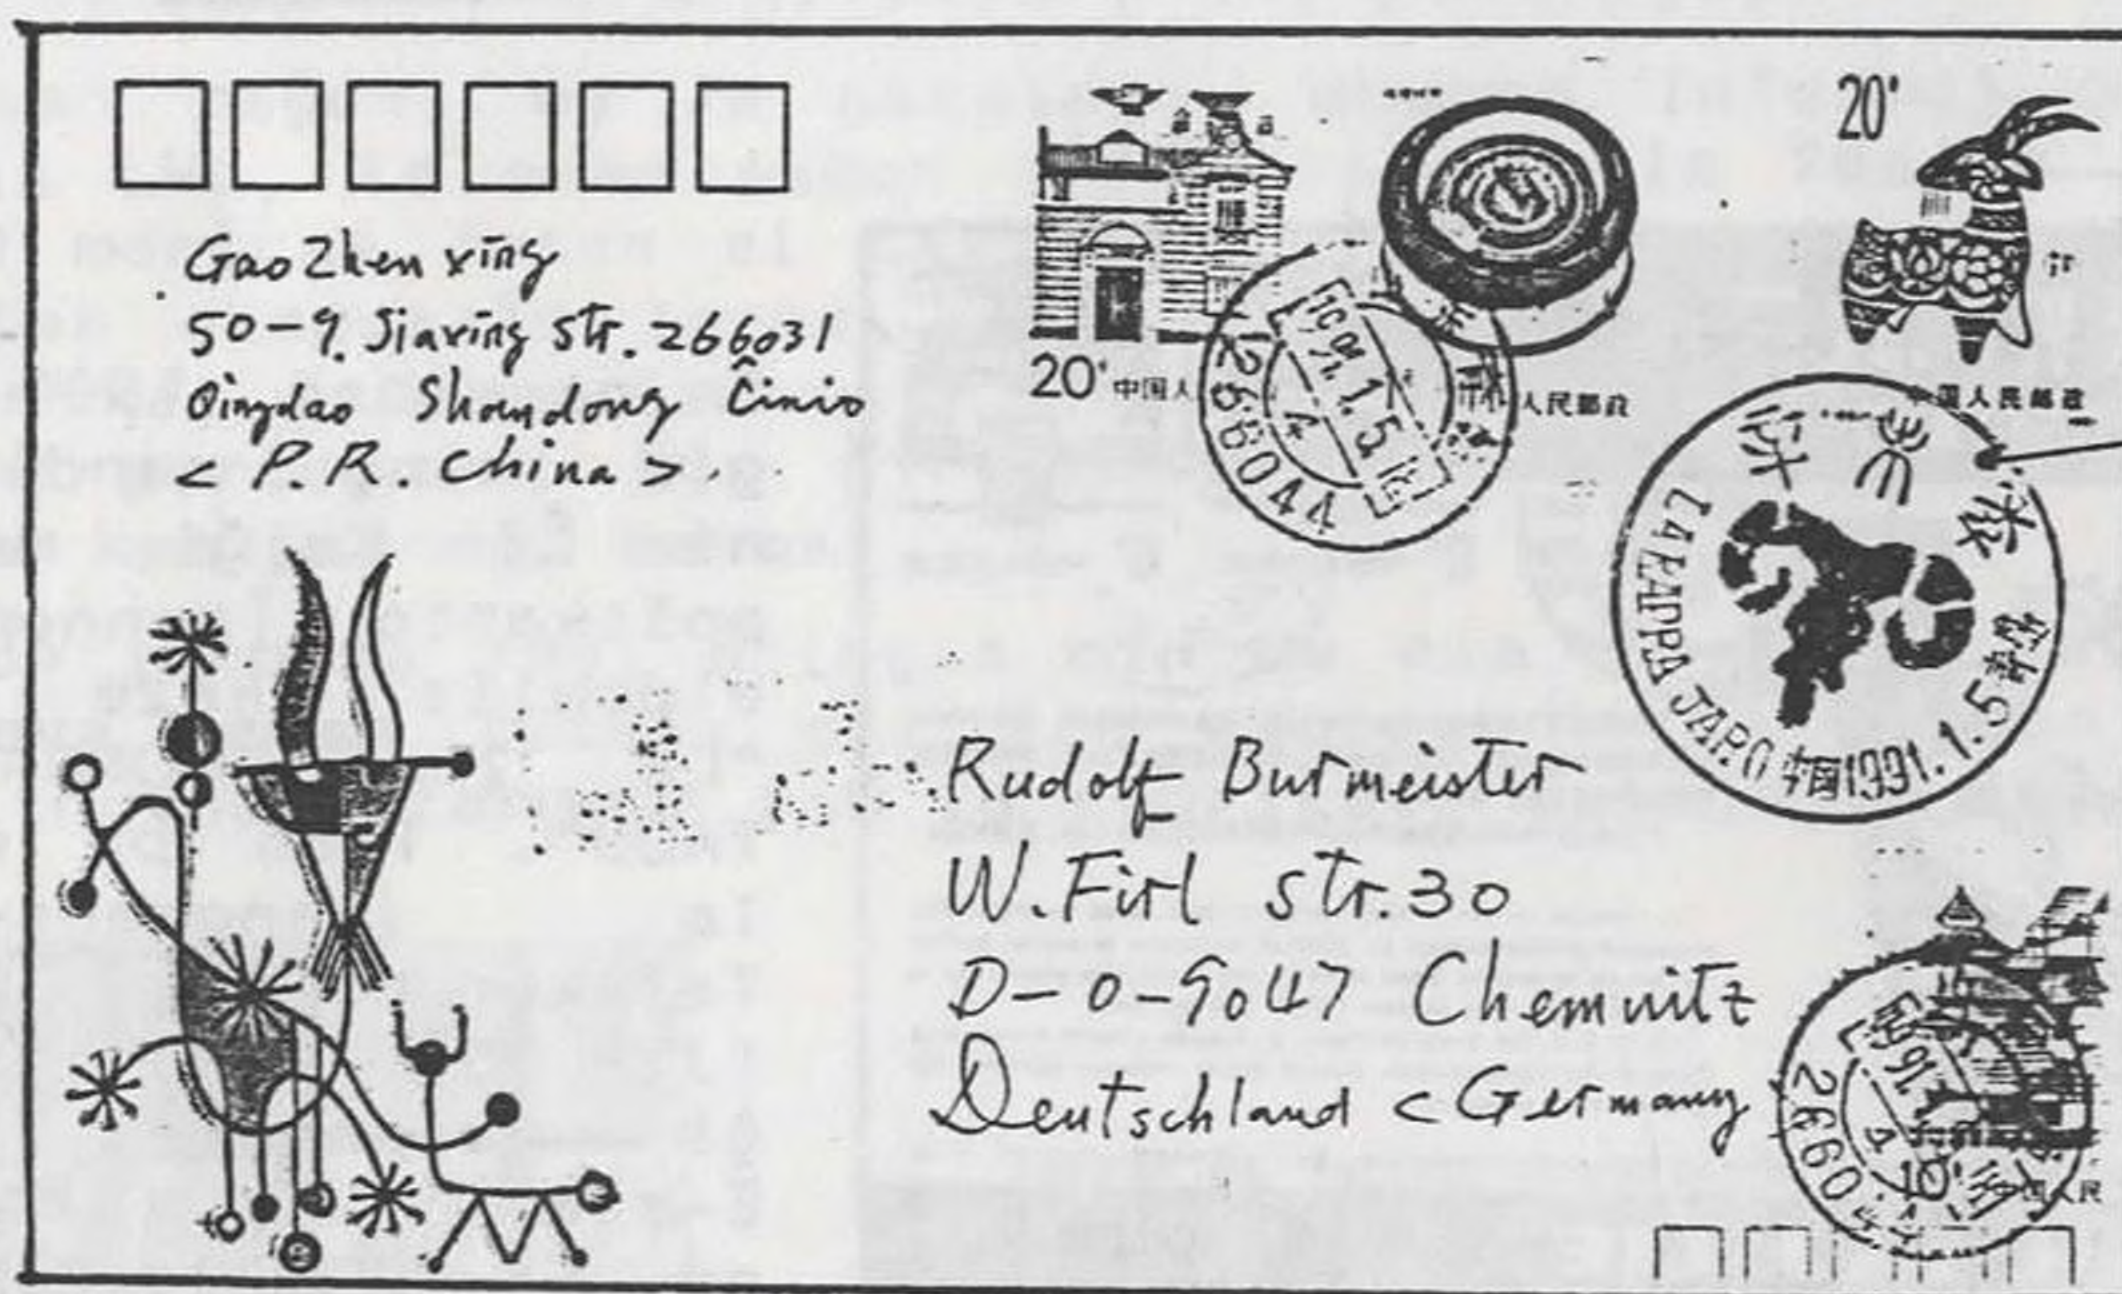 Gao Zhenxing
50-9. Jiaxing str. 266031
Qingdao Shandong Ĉinio
< P.R. China >.
20
中国人
人民邮政
20
中国人民邮政
266044
1.5
LA KAPRA JARO 中国 1991.1.5
Rudolf Burmeister
W. Firl str. 30
D-O-9047 Chemnitz
Deutschland < Germany
26604
人民